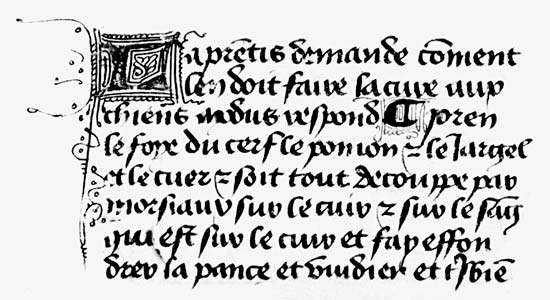 Laprẽtis demande cõment
len doit faire la cuire aux
chiens modus respond ¶ pren
le foye du cerf le pomon ⁊ le jargel
et le cuer ⁊ soit tout decouppe par
morsiaux sur le cuir ⁊ sur le sãg
qui est sur le cuir et fay effon
drer la pance et vuidier et